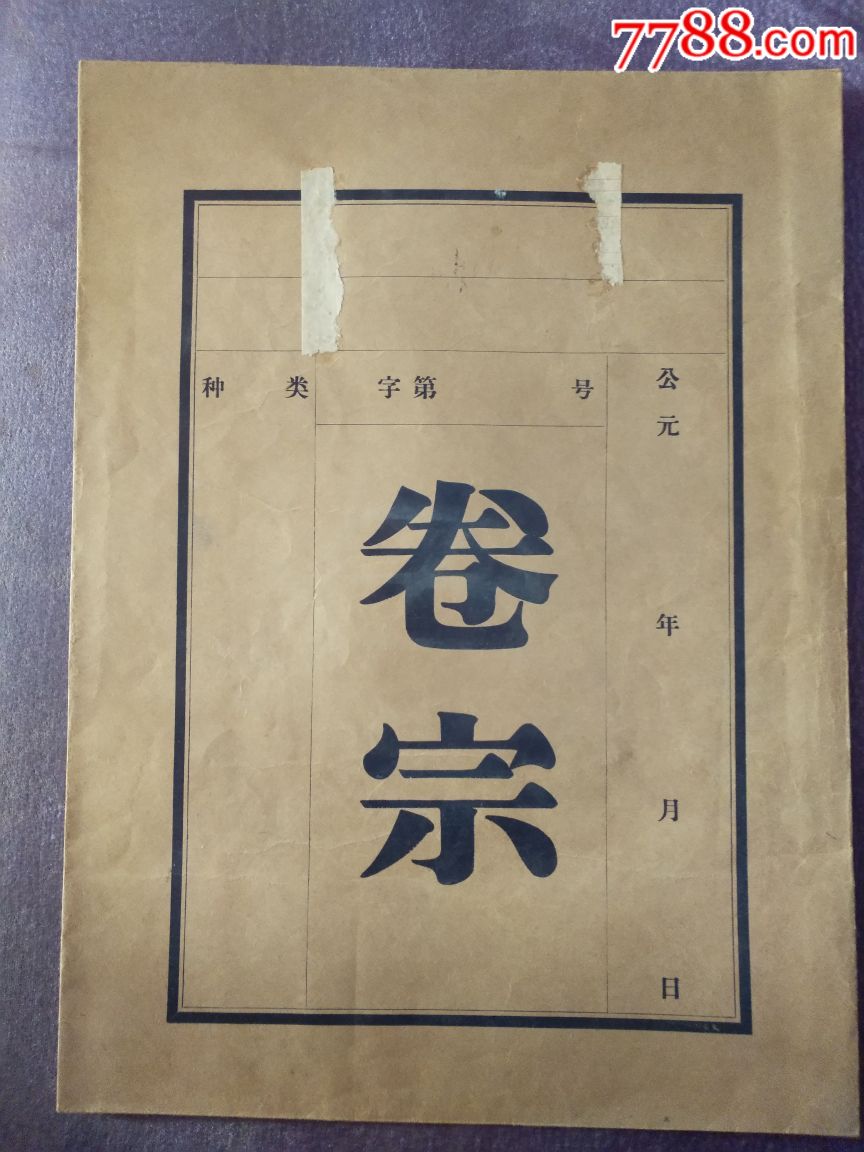 7788.com
种 类
字第 号
公元 年 月 日
卷宗